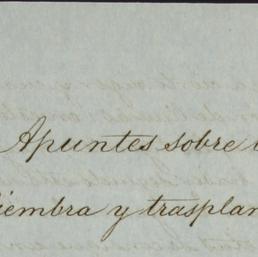 Apuntes sobre
siembra y trasplan